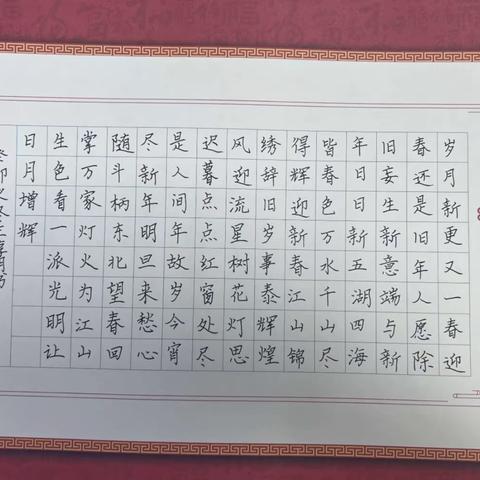 岁月新更又一春迎
春还是旧年人愿除
旧妄生新意端与新
年日日新五湖四海
皆春色万水千山尽
得辉迎新春江山锦
绣辞旧岁事泰辉煌
风迎流星树花灯思
迟暮点点红窗处尽
是人间年故岁今宵
尽新年明旦来愁心
随斗柄东北望春回
掌万家灯火为江山
生色看一派光明让
日月增辉